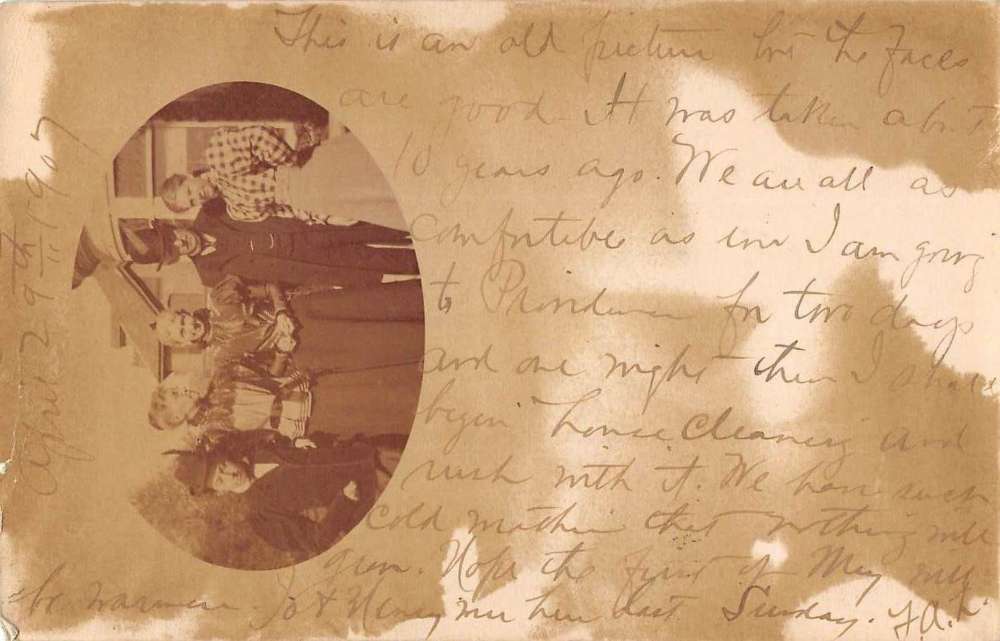 April 29th 1907
This is an old picture but the faces
are good. It was taken about
10 years ago. We are all as
comfortible as ever I am going
to Providence for two days
and one night then I shall
begin house cleaning and
rush with it. We have such
cold weather that nothing will
grow. Hope the first of May will
be warmer. Jo & Henry were here last Sunday. F.A.